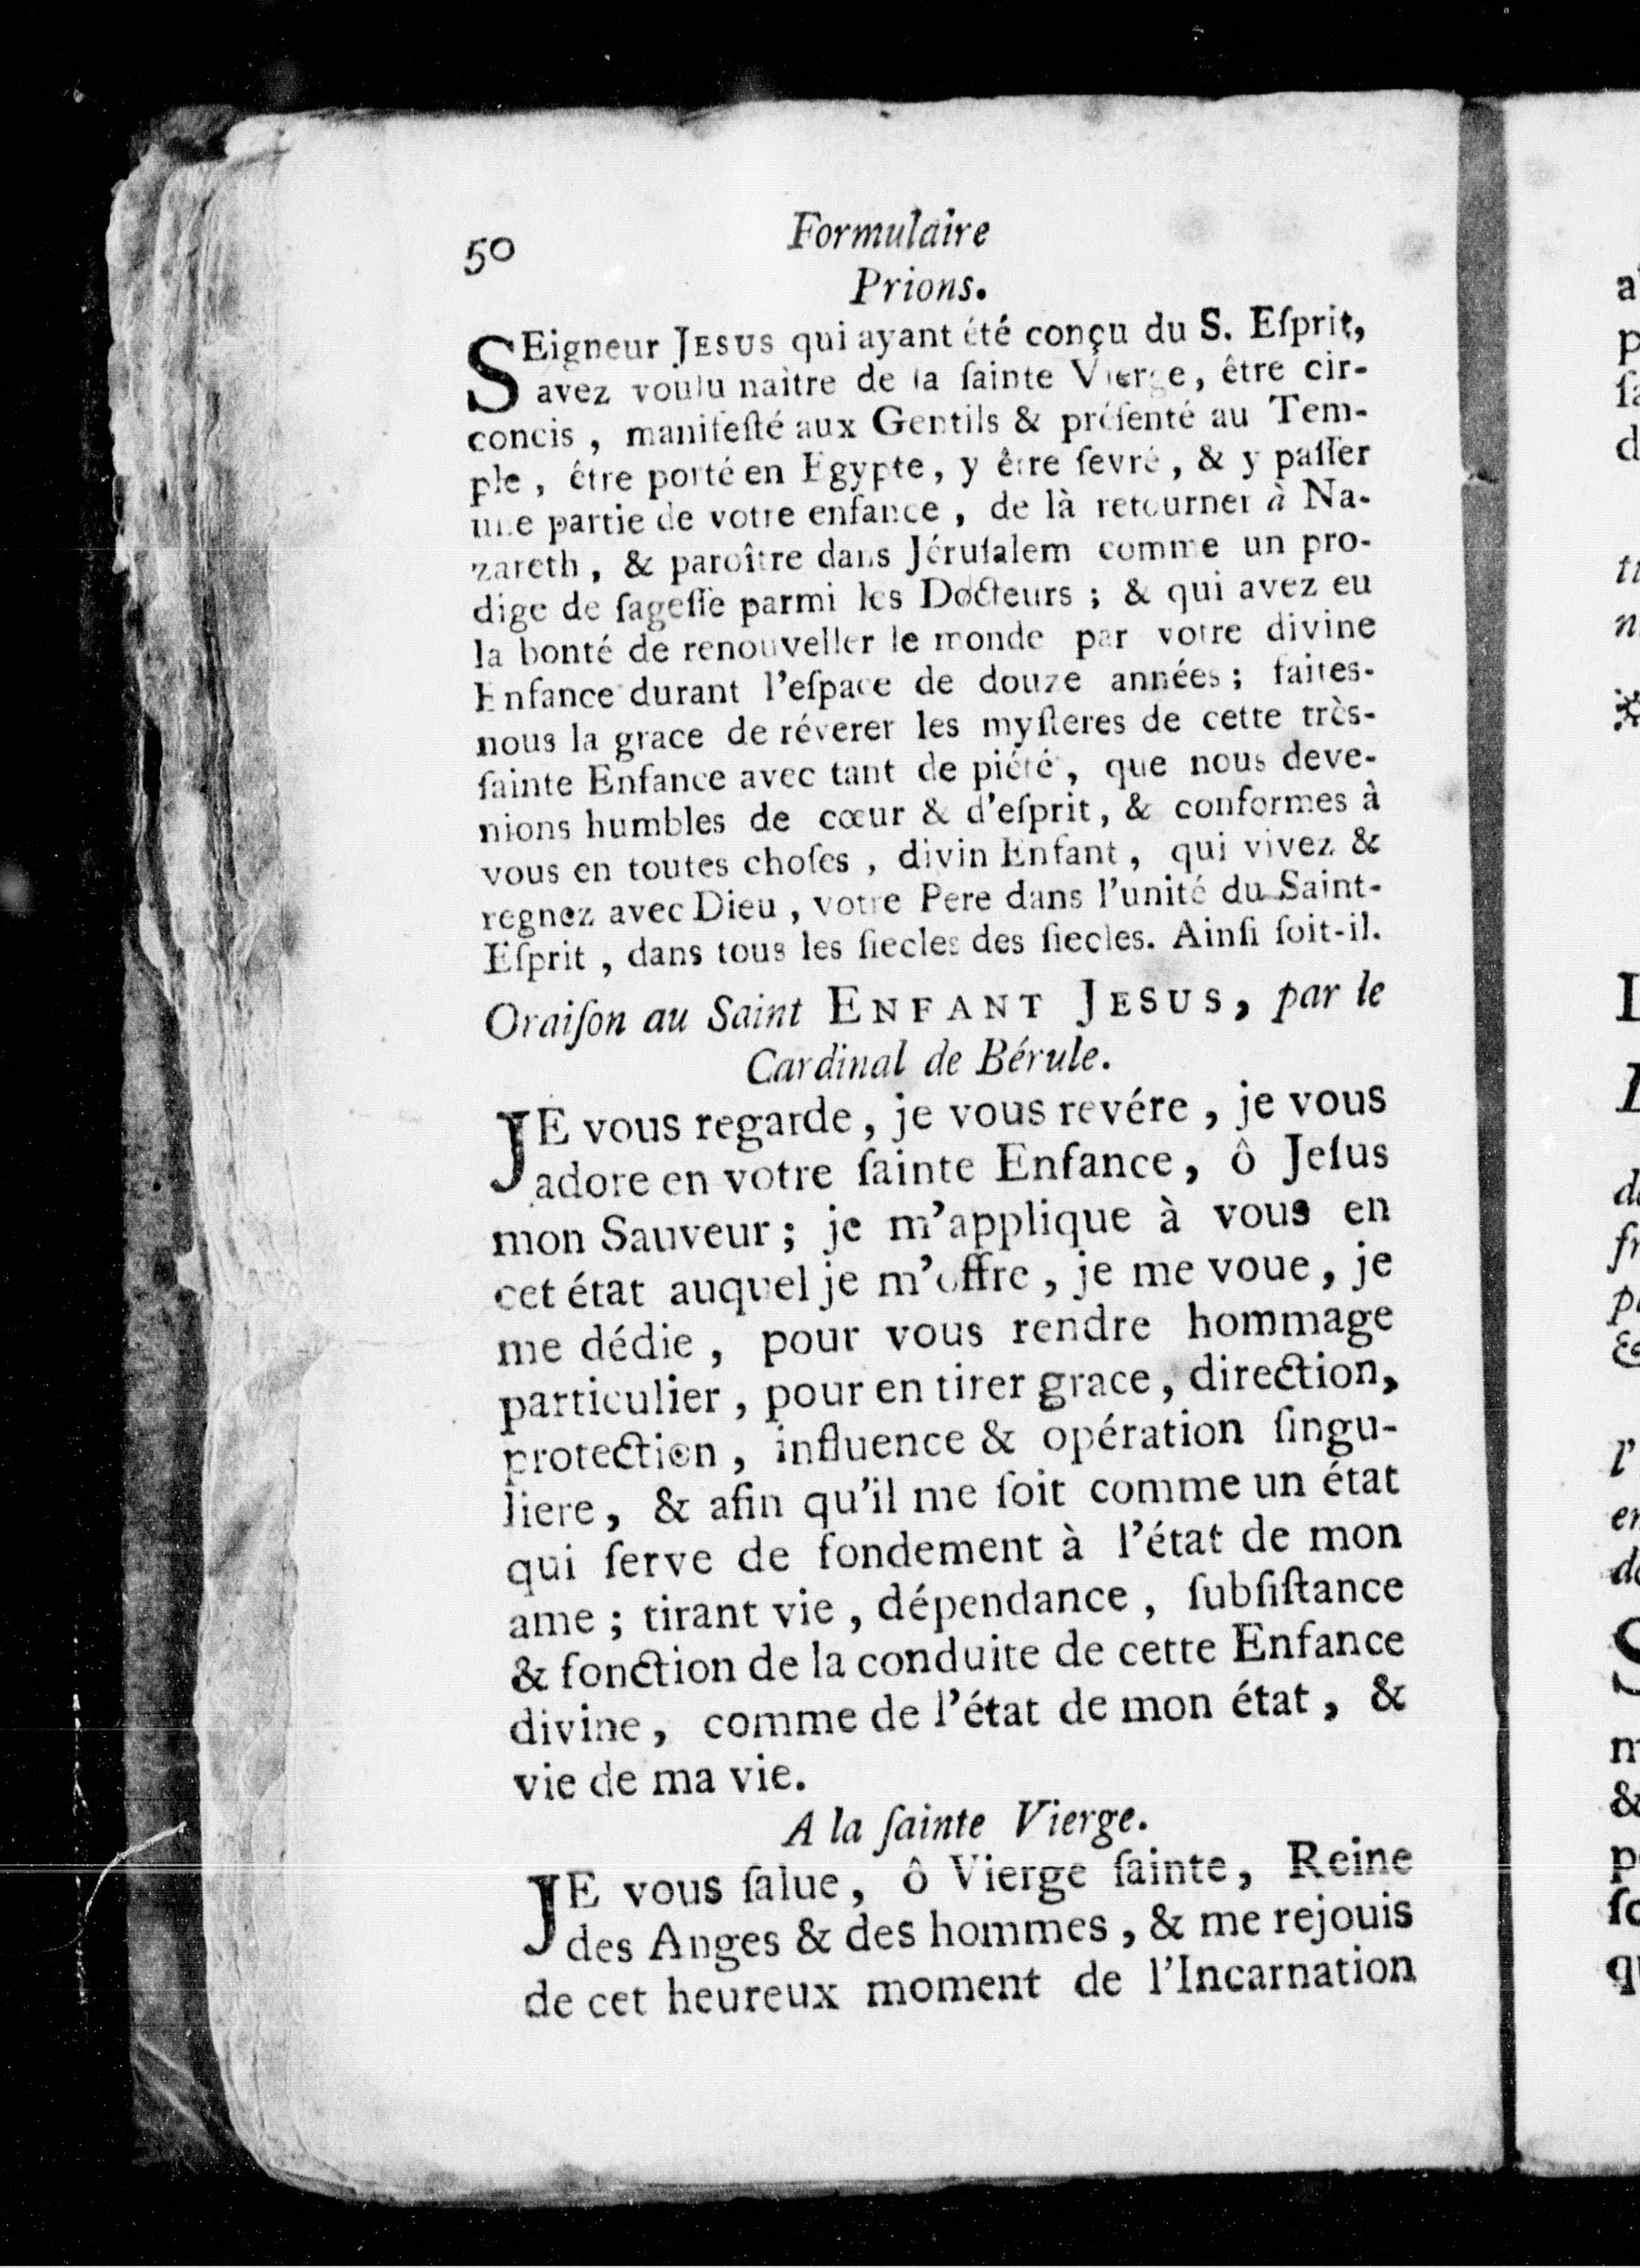 50 Formulaire
Prions.
SEigneur JESUS qui ayant été conçu du S. Eſprit,
avez voulu naître de la ſainte Vierge, être cir-
concis, manifeſté aux Gentils & préſenté au Tem-
ple, être porté en Egypte, y être ſevré, & y paſſer
une partie de votre enfance, de là retourner à Na-
zareth, & paroître dans Jéruſalem comme un pro-
dige de ſageſſe parmi les Docteurs; & qui avez eu
la bonté de renouveller le monde par votre divine
Enfance durant l'eſpace de douze années; faites-
nous la grace de réverer les myſteres de cette très-
ſainte Enfance avec tant de piété, que nous deve-
nions humbles de cœur & d'eſprit, & conformes à
vous en toutes choſes, divin Enfant, qui vivez &
regnez avec Dieu, votre Pere dans l'unité du Saint-
Eſprit, dans tous les ſiecles des ſiecles. Ainſi ſoit-il.
Oraiſon au Saint ENFANT JESUS, par le
Cardinal de Bérule.
JE vous regarde, je vous revére, je vous
adore en votre ſainte Enfance, ô Jeſus
mon Sauveur; je m'applique à vous en
cet état auquel je m'offre, je me voue, je
me dédie, pour vous rendre hommage
particulier, pour en tirer grace, direction,
protection, influence & opération ſingu-
liere, & afin qu'il me ſoit comme un état
qui ſerve de fondement à l'état de mon
ame; tirant vie, dépendance, ſubſiſtance
& fonction de la conduite de cette Enfance
divine, comme de l'état de mon état, &
vie de ma vie.
A la ſainte Vierge.
JE vous ſalue, ô Vierge ſainte, Reine
des Anges & des hommes, & me rejouis
de cet heureux moment de l'Incarnation